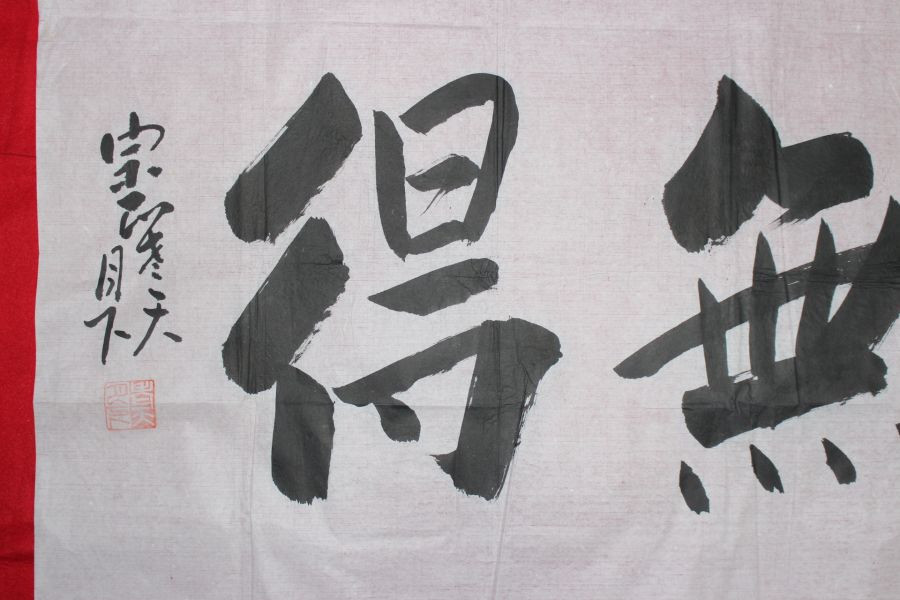 無得
宗寒天
月下